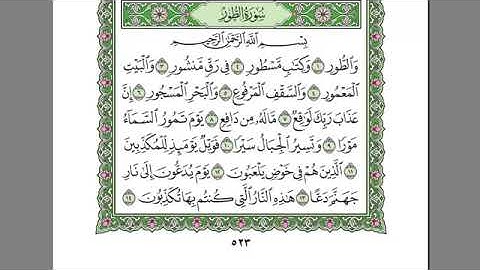 سُورَةُ الطُّورِ
بِسْمِ اللَّهِ الرَّحْمَٰنِ الرَّحِيمِ
وَالطُّورِ ١ وَكِتَابٍ مَّسْطُورٍ ٢ فِي رَقٍّ مَّنشُورٍ ٣ وَالْبَيْتِ
الْمَعْمُورِ ٤ وَالسَّقْفِ الْمَرْفُوعِ ٥ وَالْبَحْرِ الْمَسْجُورِ ٦ إِنَّ
عَذَابَ رَبِّكَ لَوَاقِعٌ ٧ مَّا لَهُ مِن دَافِعٍ ٨ يَوْمَ تَمُورُ السَّمَاءُ
مَوْرًا ٩ وَتَسِيرُ الْجِبَالُ سَيْرًا ١٠ فَوَيْلٌ يَوْمَئِذٍ لِّلْمُكَذِّبِينَ
١١ الَّذِينَ هُمْ فِي خَوْضٍ يَلْعَبُونَ ١٢ يَوْمَ يُدَعُّونَ إِلَىٰ نَارِ
جَهَنَّمَ دَعًّا ١٣ هَٰذِهِ النَّارُ الَّتِي كُنتُم بِهَا تُكَذِّبُونَ ١٤
٥٢٣